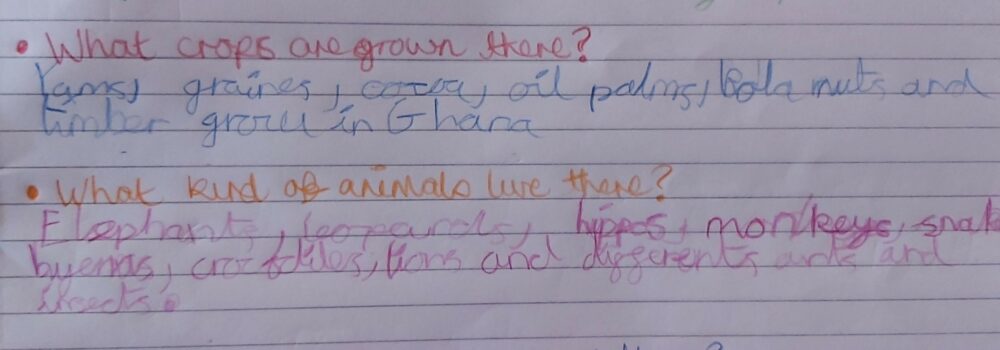 • What crops are grown there?
Yams, graines, cocoa, oil palms, Kola nuts and
timber grow in Ghana
• What kind of animals live there?
Elephants, leopards, hippos, monkeys, snak
hyenas, crocodiles, lions and differents ants and
insects.